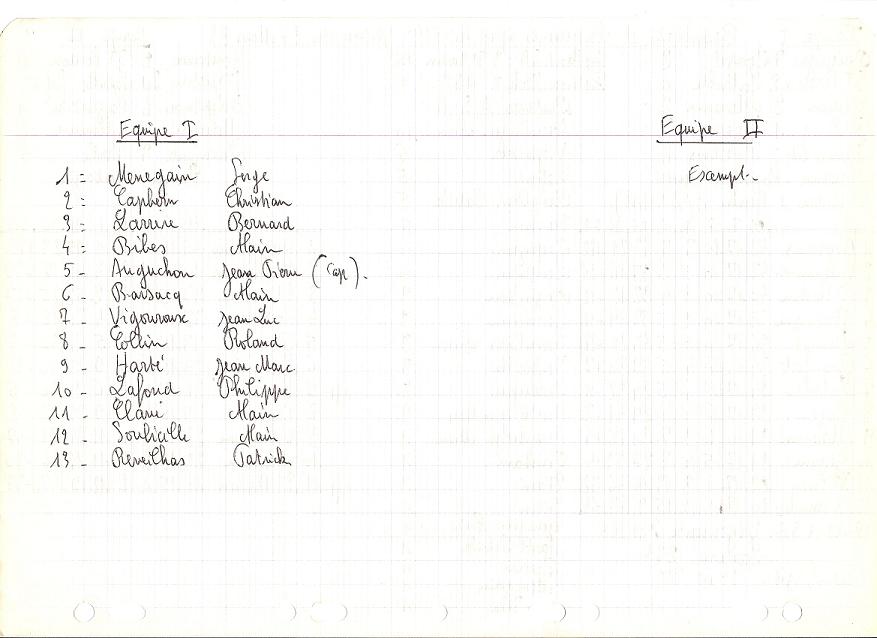 Equipe I
Equipe II
1 = Menegain Serge
Exempt.
2 : Caphern Christian
3 : Larrire Bernard
4 : Bibes Alain
5 - Auguchon Jean Pierre (Cap).
6 - Barsacq Alain
7 - Vigouroux Jean Luc
8 - Collin Roland
9 - Harbé Jean Marc
10 - Lafond Philippe
11 - Alain
12 - Alain
13 - Reveilhas Patrick